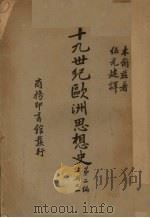 木爾茲著
伍光建譯
十九世紀歐洲思想史
第二編
商務印書館發行